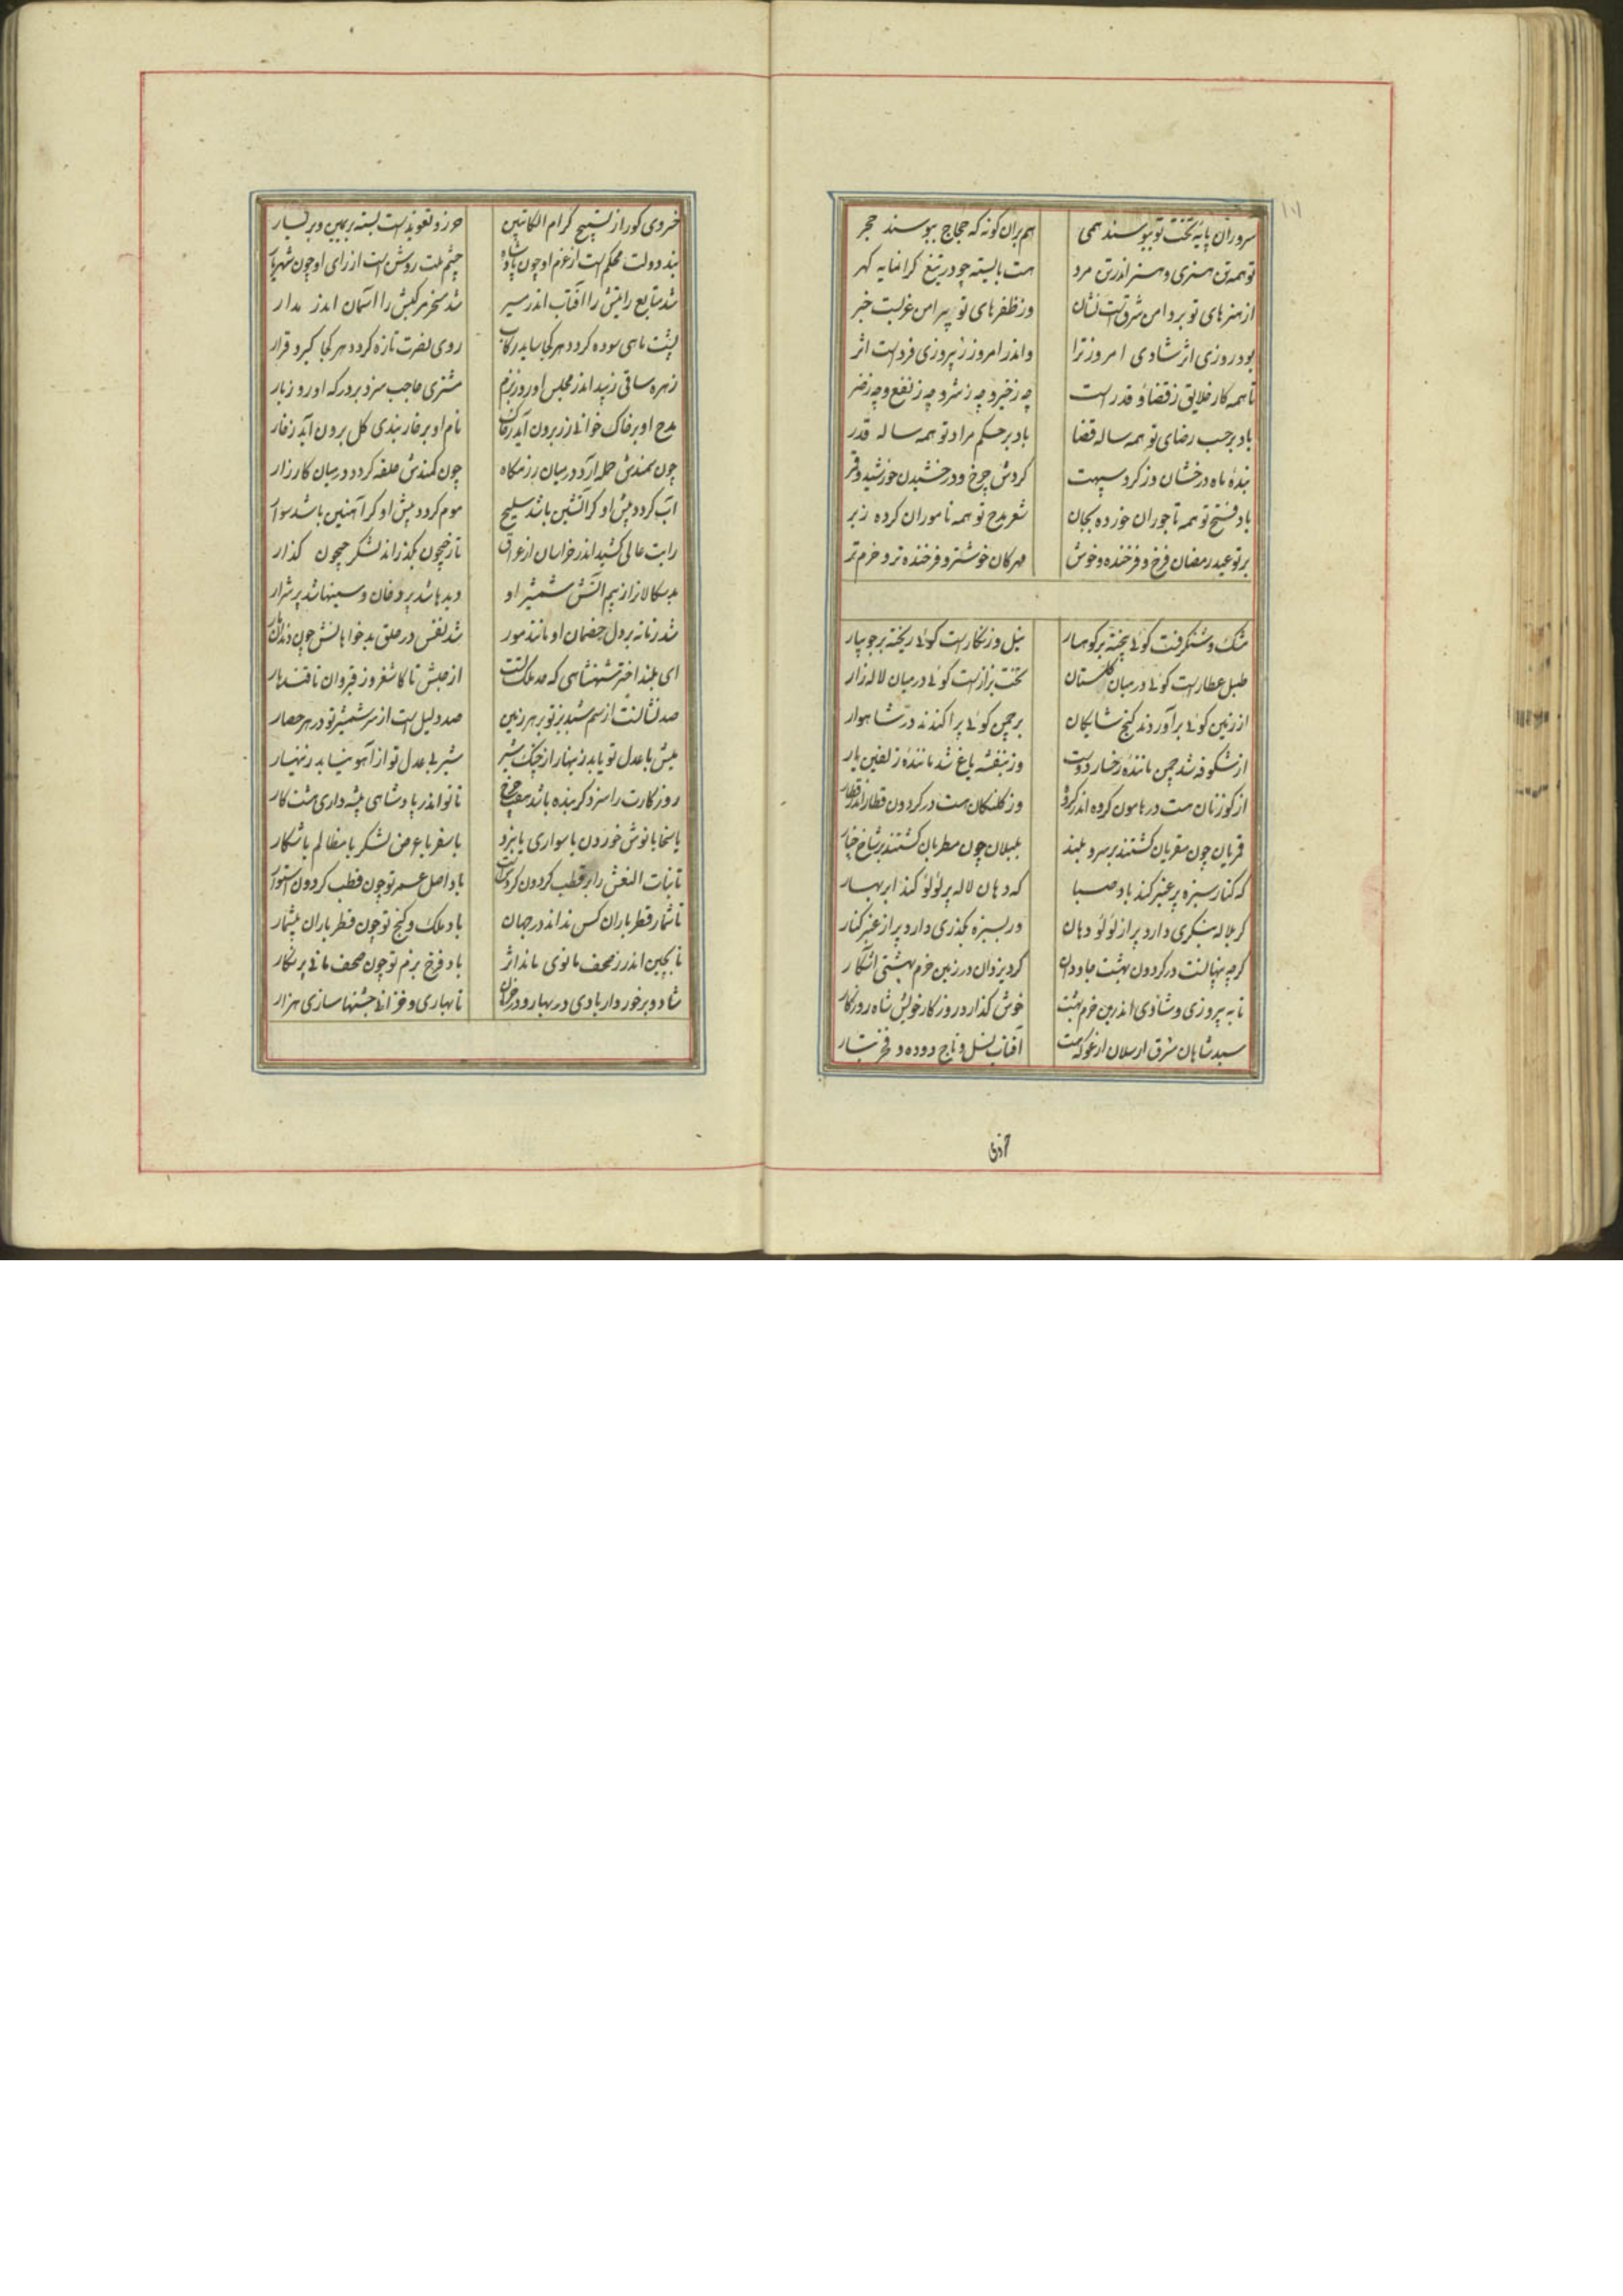 سروران پایه تخت تو ببوسند همی هم بران کونه که حجاج ببوسند حجر
تو همه تن هنری و هنر اندر تن مرد هست بایسته چو در تیغ کرانمایه کهر
از هنرهای تو بر دامن شرقست نشان وز ظفرهای تو پیرامن غربست خبر
بود روزی اثر شادی امروز ترا واندر امروز ز پیروزی فرداست اثر
تا همه کار خلایق ز قضا و قدرست چه ز خیر و چه ز شر و چه ز نفع و چه ز ضر
باد بر حسب رضای تو همه ساله قضا باد بر حکم مراد تو همه ساله قدر
بندهٔ ماه درخشان وز کرد سپهت کردش چرخ و درخشیدن خورشید و قمر
باد فتح تو همه تاجوران خورده بجان شعر مدح تو همه ناموران کرده ز بر
بر تو عید رمضان فرخ و فرخنده و خوش مهرکان خوشتر و فرخنده‌تر و خرم‌تر
مشک و شنکرفست کوئی بیخته بر کوهسار نیل و زنکارست کوئی ریخته بر جویبار
طبل عطارست کوئی در میان کلستان تخت بزازست کوئی در میان لاله زار
از زمین کوئی برآوردند کنج شایکان بر چمن کوئی پراکندند در شاهوار
از شکوفه شد چمن مانندهٔ رخسار دوست وز بنفشه باغ شد مانندهٔ زلفین یار
از کوزنان هست در هامون کروه اندر کروه وز کلنکان هست در کردون قطار اندر قطار
قمریان چون مقریان کشتند بر سرو بلند بلبلان چون مطربان کشتند بر شاخ چنار
که کنار سبزه پر عنبر کند باد صبا که دهان لاله پر لؤلؤ کند ابر بهار
کر بلاله بنکری دارد پر از لؤلؤ دهان ور بسبزه بکذری دارد پر از عنبر کنار
کرچه پنهانست در کردون بهشت جاودان کرد یزدان در زمین خرم بهشتی آشکار
تا به پیروزی و شادی اندرین خرم بهشت خوش کذارد روزکار خویش شاه روزکار
سید شاهان شرق ارسلان ارغو که هست آفتاب نسل و تاج دوده و فخر تبار
خسروی کورا ز تسبیح کرام الکاتبین حرز و تعویذست بسته بر یمین و بر یسار
بند دولت محکم است از عزم او چون پادشاه چشم ملت روشن است از رای او چون شهریار
شد متابع رایتش را آفتاب اندر مسیر شد مسخر مرکبش را آسمان اندر مدار
پشت ماهی سوده کردد هر کجا ساید رکاب روی نصرت تازه کردد هر کجا کیرد قرار
زهره ساقی زیبد اندر مجلس او روز بزم مشتری حاجب سزد بر درکه او روز بار
مدح او بر خاک خوانی زر برون آید ز خاک نام او بر خار بندی کل برون آید ز خار
چون سمندش حمله آرد در میان رزمکاه چون کمندش حلقه کردد در میان کارزار
آب کردد پیش او کر آتشین باشد سلیح موم کردد پیش او کر آهنین باشد سوار
رایت عالی کشید اندر خراسان از عراق تا ز جیحون بکذراند لشکر جیحون کذار
بدسکالانرا ز بیم آتش شمشیر او دیدها شد پر دخان و سینها شد پر شرار
شد زمانه بر دل خصمان او مانند مور شد نفس در حلق بدخواهانش چون دندان مار
ای بلند اختر شهنشاهی که حد ملک تست از حبش تا کاشغر وز قیروان تا قندهار
صد نشانست از سم شبدیز تو بر هر زمین صد دلیل است از سر شمشیر تو در هر حصار
میش با عدل تو یابد زینهار از چنک شیر شیر بی عدل تو از آهو نیابد زینهار
روزکارت را سزد کر بنده باشد سعد چرخ تا تو اندر پادشاهی پیشه داری هشت کار
یا سخا یا نوش خوردن یا سواری یا نبرد یا سفر یا عرض لشکر یا مظالم یا شکار
تا بنات النعش را بر قطب کردون کردش است باد اصل عمر تو چون قطب کردون استوار
تا شمار قطر باران کس نداند در جهان باد ملک و کنج تو چون قطر باران بیشمار
تا بچین اندر ز صحف مانوی ماند اثر باد فرخ بزم تو چون صحف مانی پر نکار
شاد و برخوردار بادی در بهار و در خزان تا بهاری و خزانی جشنها سازی هزار